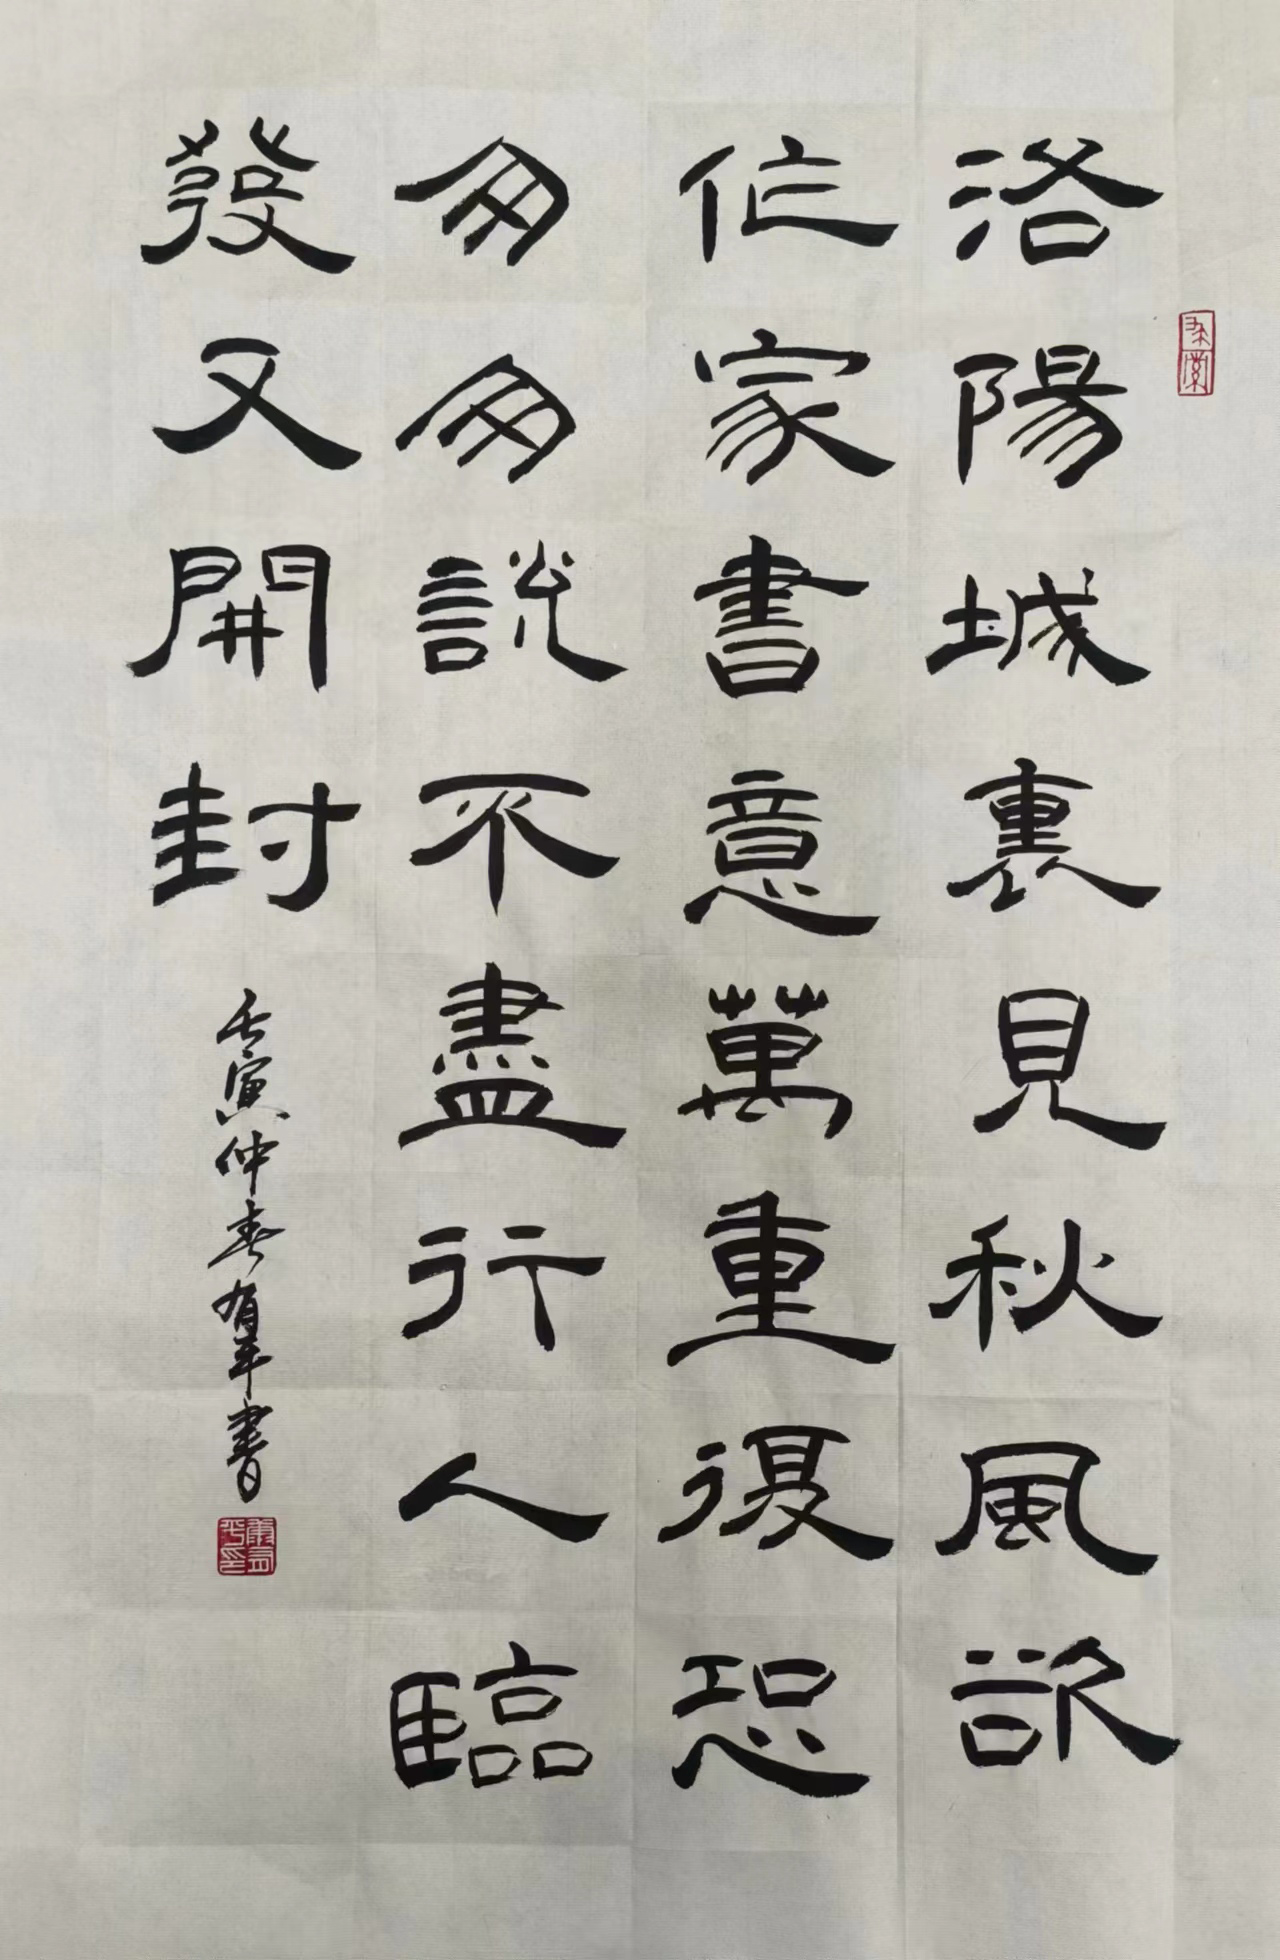 洛陽城裏見秋風欲
作家書意萬重復恐
匆匆說不盡行人臨
發又開封
壬寅仲春有年書